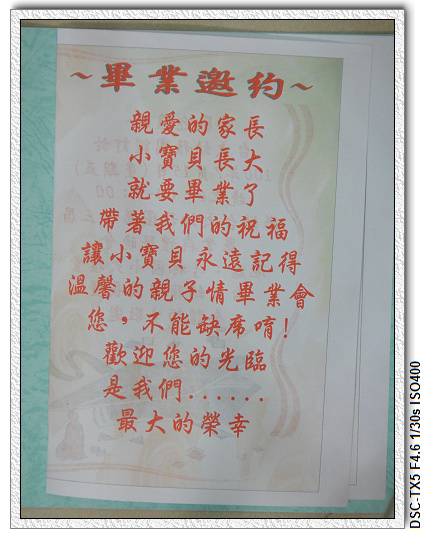 ~畢業邀約~
親愛的家長
小寶貝長大
就要畢業了
帶著我們的祝福
讓小寶貝永遠記得
溫馨的親子情畢業會
您，不能缺席唷!
歡迎您的光臨
是我們......
最大的榮幸
DSC-TX5 F4.6 1/30s ISO400